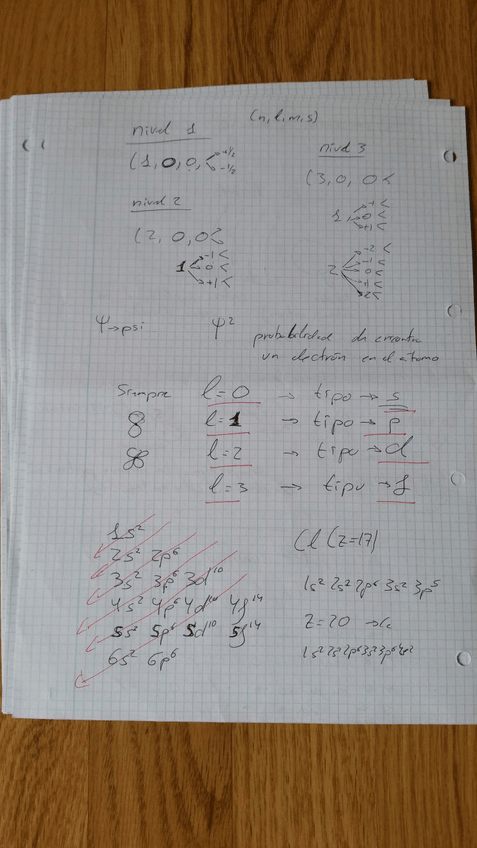 (n, l, m, s)
nivel 1
(1, 0, 0, < +1/2
-1/2
nivel 2
(2, 0, 0<
1 -1 <
0 <
+1 <
nivel 3
(3, 0, 0<
1, +1 <
0 <
+1 <
2 -2 <
-1 <
0 <
+1 <
2 <
Ψ→psi Ψ²
probabilidad de encontrar
un electrón en el átomo
Siempre l=0 → tipo → s
l=1 → tipo → p
l=2 → tipo → d
l=3 → tipo → f
1s²
2s² 2p⁶
3s² 3p⁶ 3d¹⁰
4s² 4p⁶ 4d¹⁰ 4f¹⁴
5s² 5p⁶ 5d¹⁰ 5f¹⁴
6s² 6p⁶
Cl (Z=17)
1s² 2s² 2p⁶ 3s² 3p⁵
Z=20 →
1s² 2s² 2p⁶ 3s² 3p⁶ 4s²